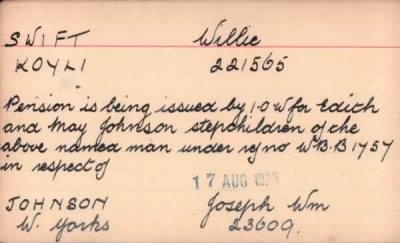 SWIFT Willie
KOYLI 221565
Pension is being issued by I.O.W for Edith
and May Johnson stepchildren of the
above named man under reg no W.B.B 1757
in respect of
17 AUG
JOHNSON Joseph Wm
W. Yorks 23609.